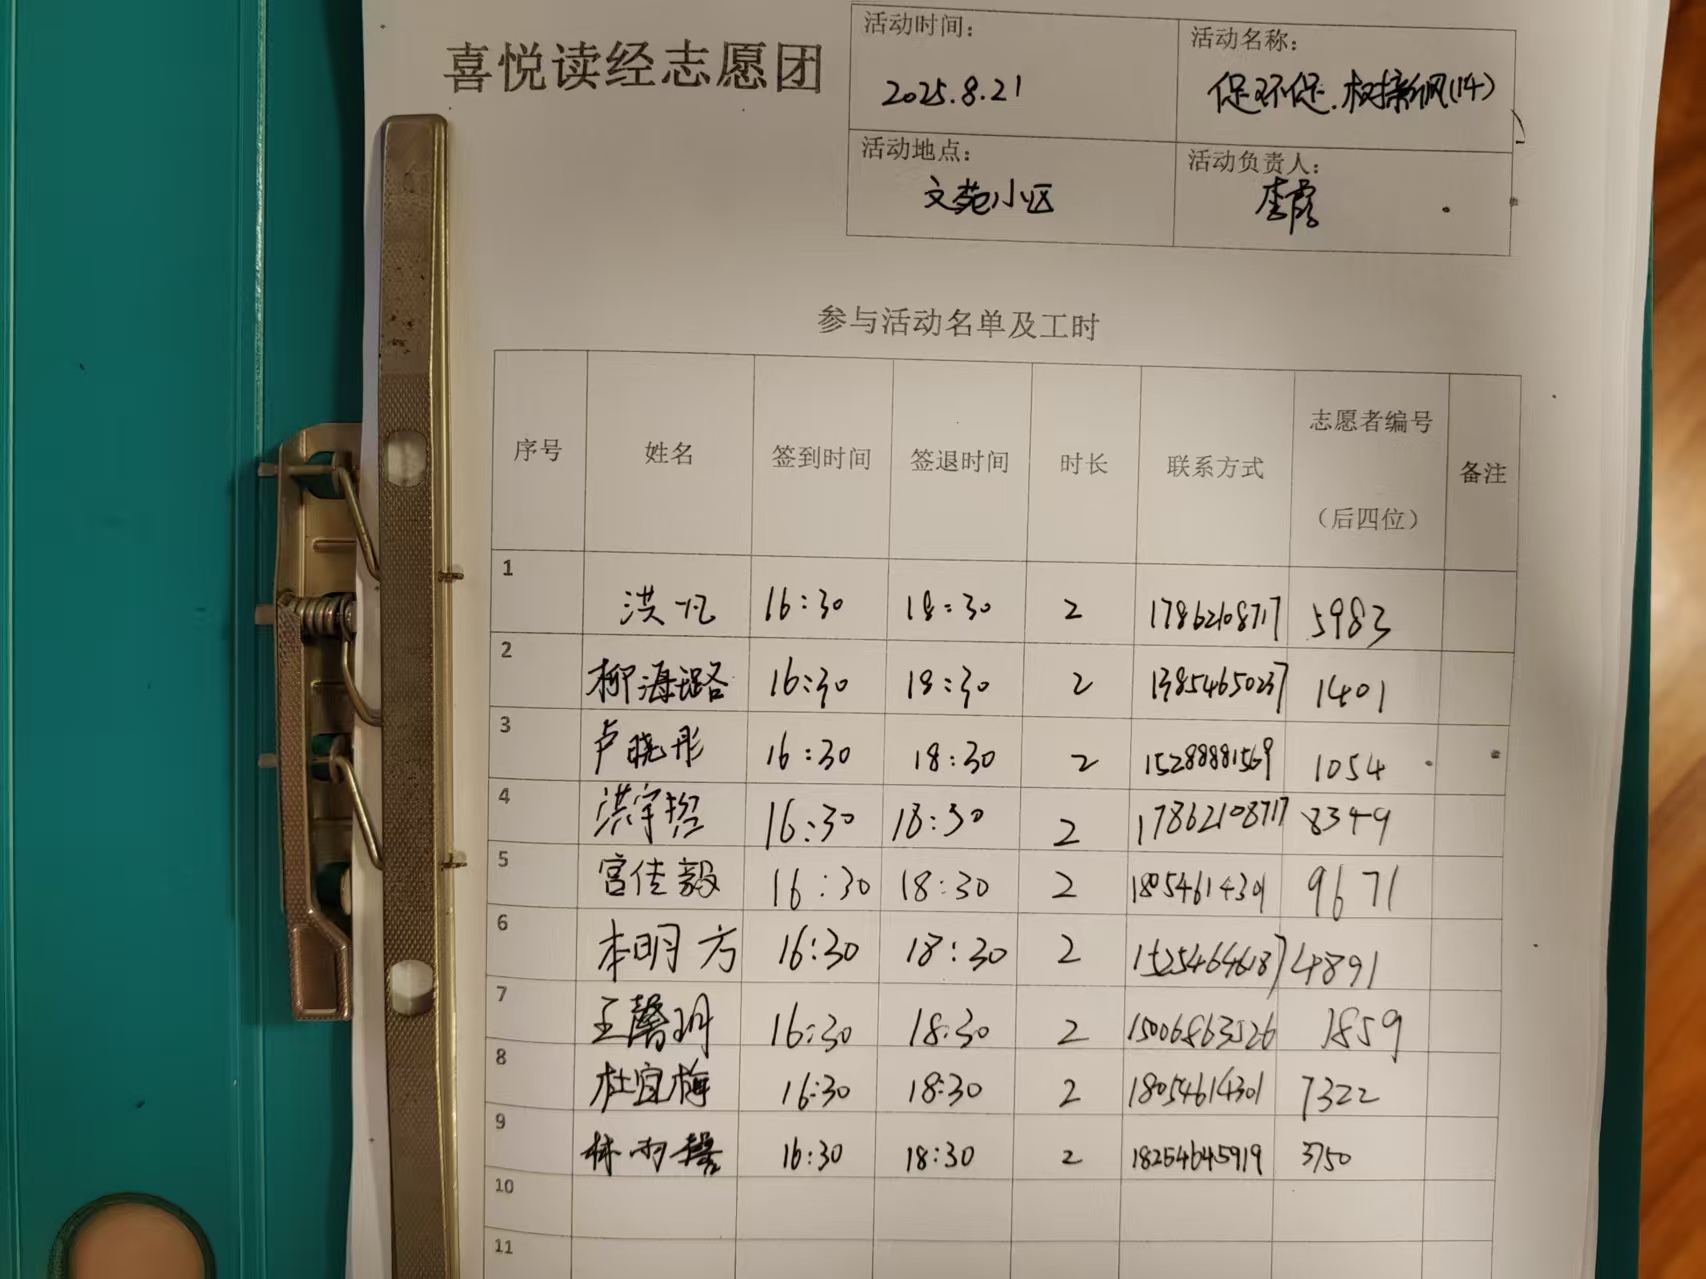 喜悦读经志愿团
活动时间：
2025.8.21
活动名称：
促环保
活动地点：
文苑小区
活动负责人：
李霞
参与活动名单及工时
序号 姓名 签到时间 签退时间 时长 联系方式 志愿者编号（后四位） 备注
1 洪凡 16:30 18:30 2 17862108717 5983
2 柳海璐 16:30 18:30 2 13854650237 1401
3 卢晓彤 16:30 18:30 2 15288881569 1054
4 洪宇 16:30 18:30 2 17862108717 8349
5 宫佳毅 16:30 18:30 2 18054614301 9671
6 本明方 16:30 18:30 2 15254646187 4891
7 王馨玥 16:30 18:30 2 15006863526 1859
8 杜宜梅 16:30 18:30 2 18054614301 7322
9 林雨馨 16:30 18:30 2 18254645919 3750
10
11